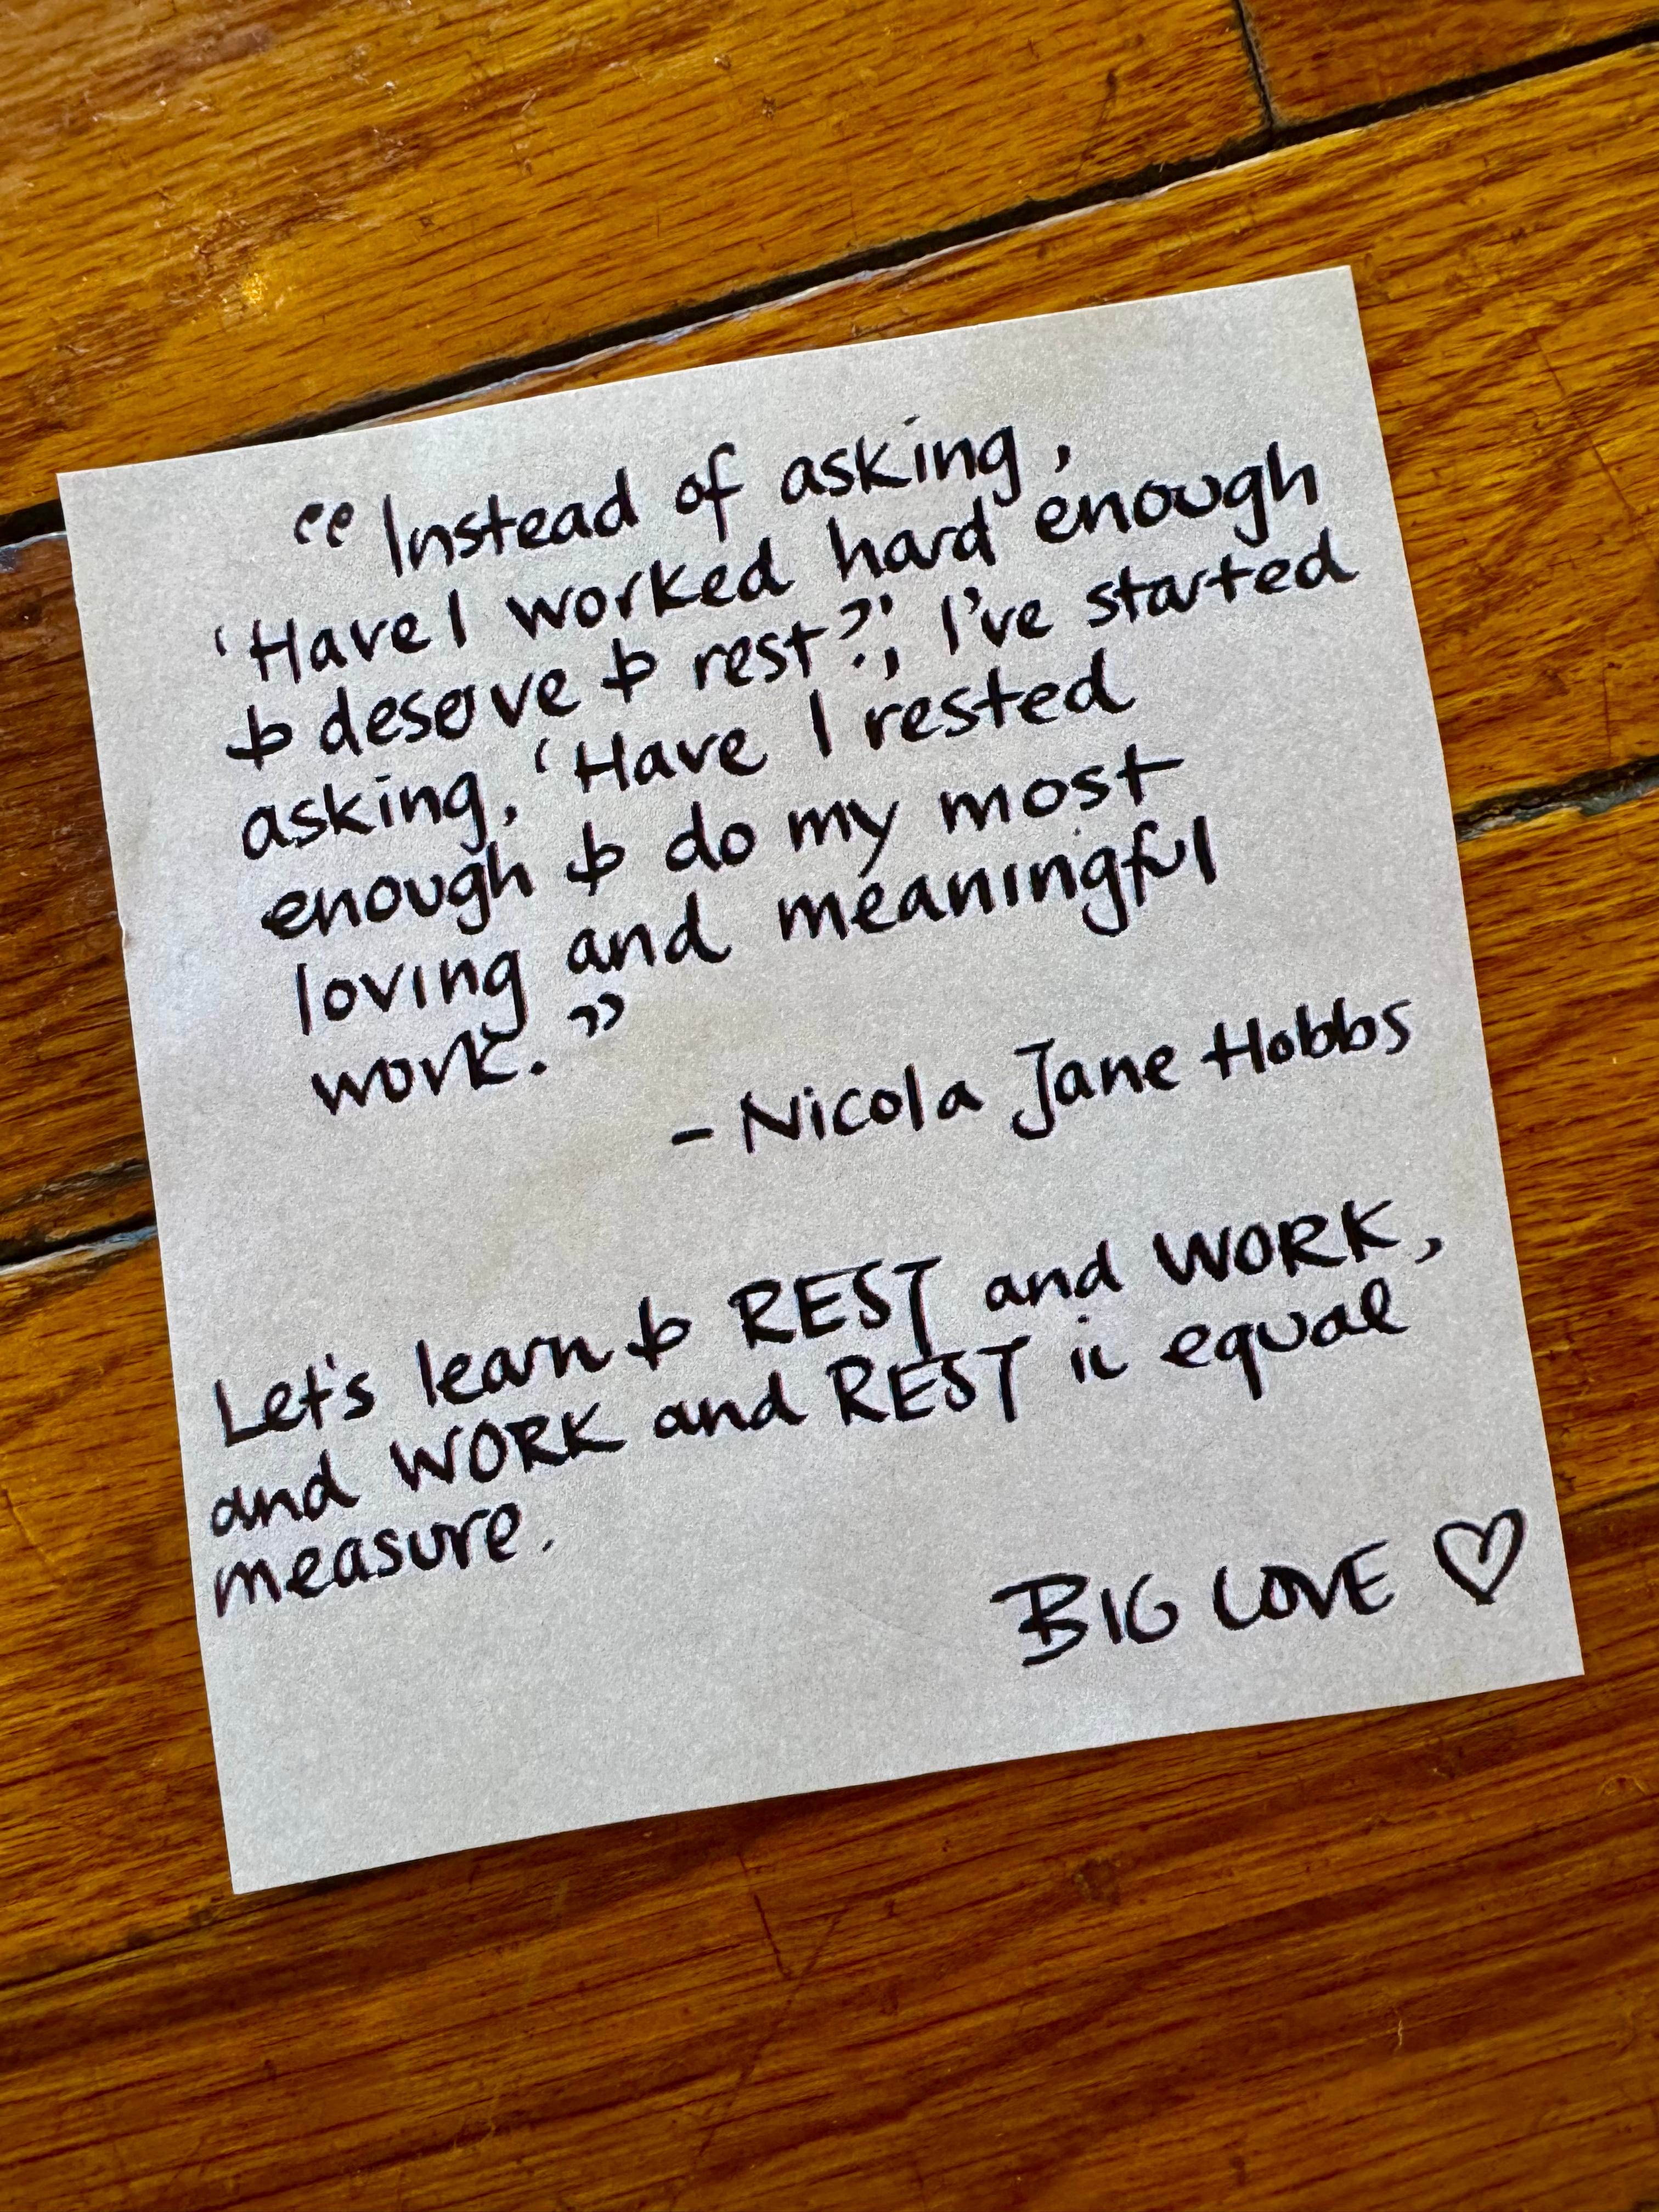 “Instead of asking,
‘Have I worked hard enough
to deserve to rest?’, I've started
asking, ‘Have I rested
enough to do my most
loving and meaningful
work.”
- Nicola Jane Hobbs
Let's learn to REST and WORK,
and WORK and REST in equal
measure.
BIG LOVE ♡